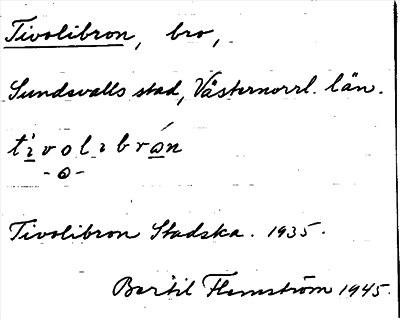 Tivolibron, bro,
Sundsvalls stad, Västernorrl. län.
tivolıbrón
-o-
Tivolibron Stadska. 1935.
Bertil Flemström 1945.